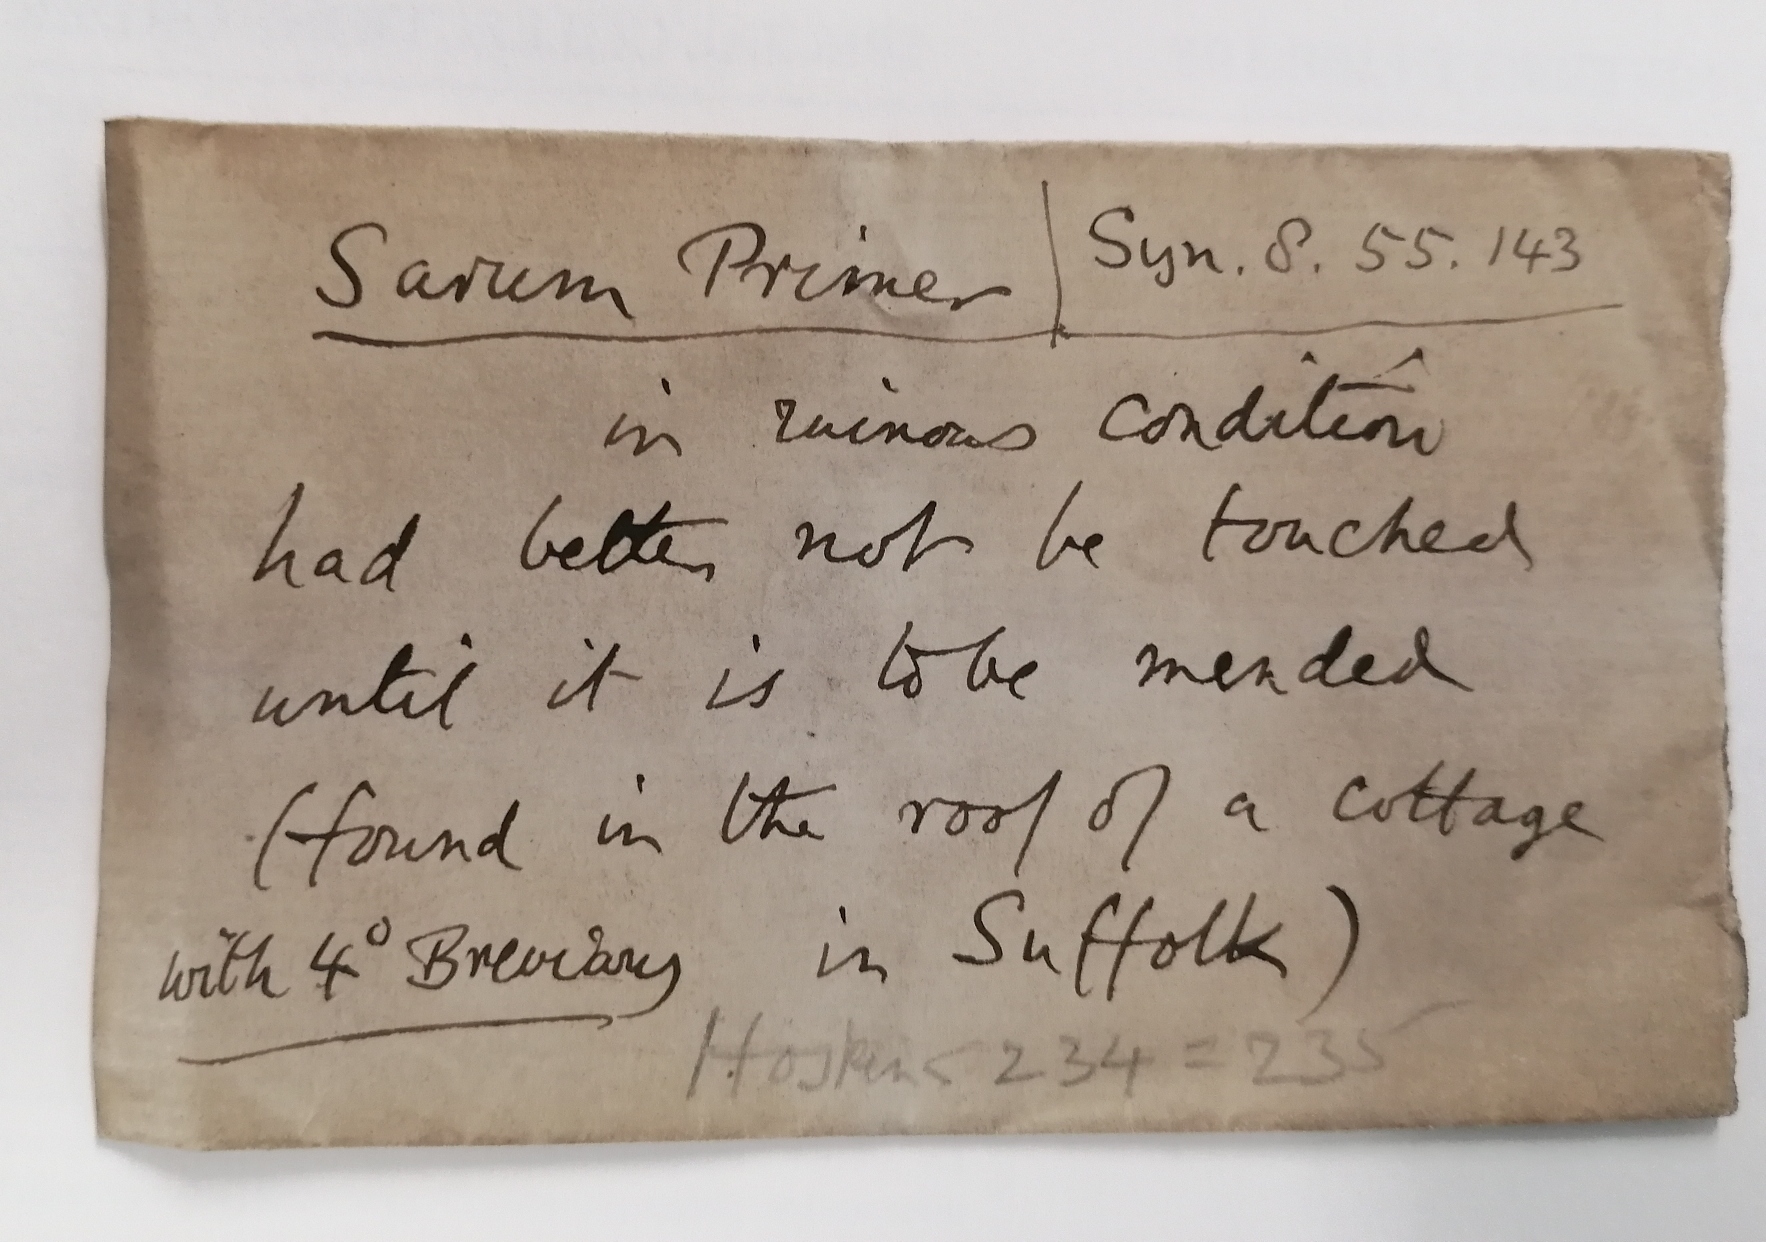 Sarum Primer | Syn. 8. 55. 143
in ruinous condition
had better not be touched
until it is to be mended
(found in the roof of a cottage
with 4° Breviary in Suffolk)
Hoskins 234 = 235